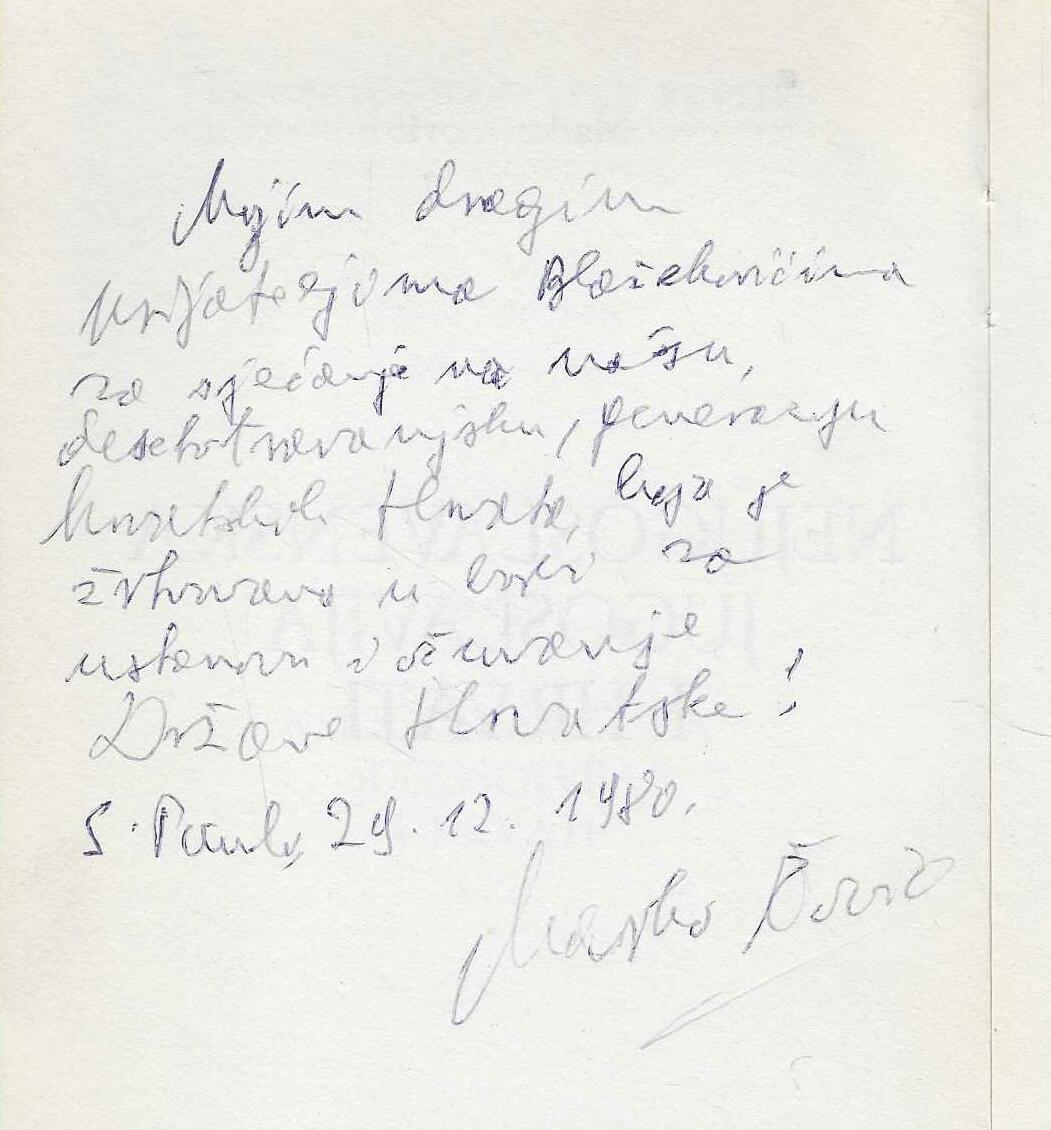 Mojim dragim
prijateljima Blažekovićima
za sjećanje na našu,
desetotravanjsku, generaciju
hrvatskih Hrvata, koja je
žrtvovana u borbi za
ustanovu i očuvanje
Države Hrvatske!
S. Paulo, 29. 12. 1980.
Marko Čović